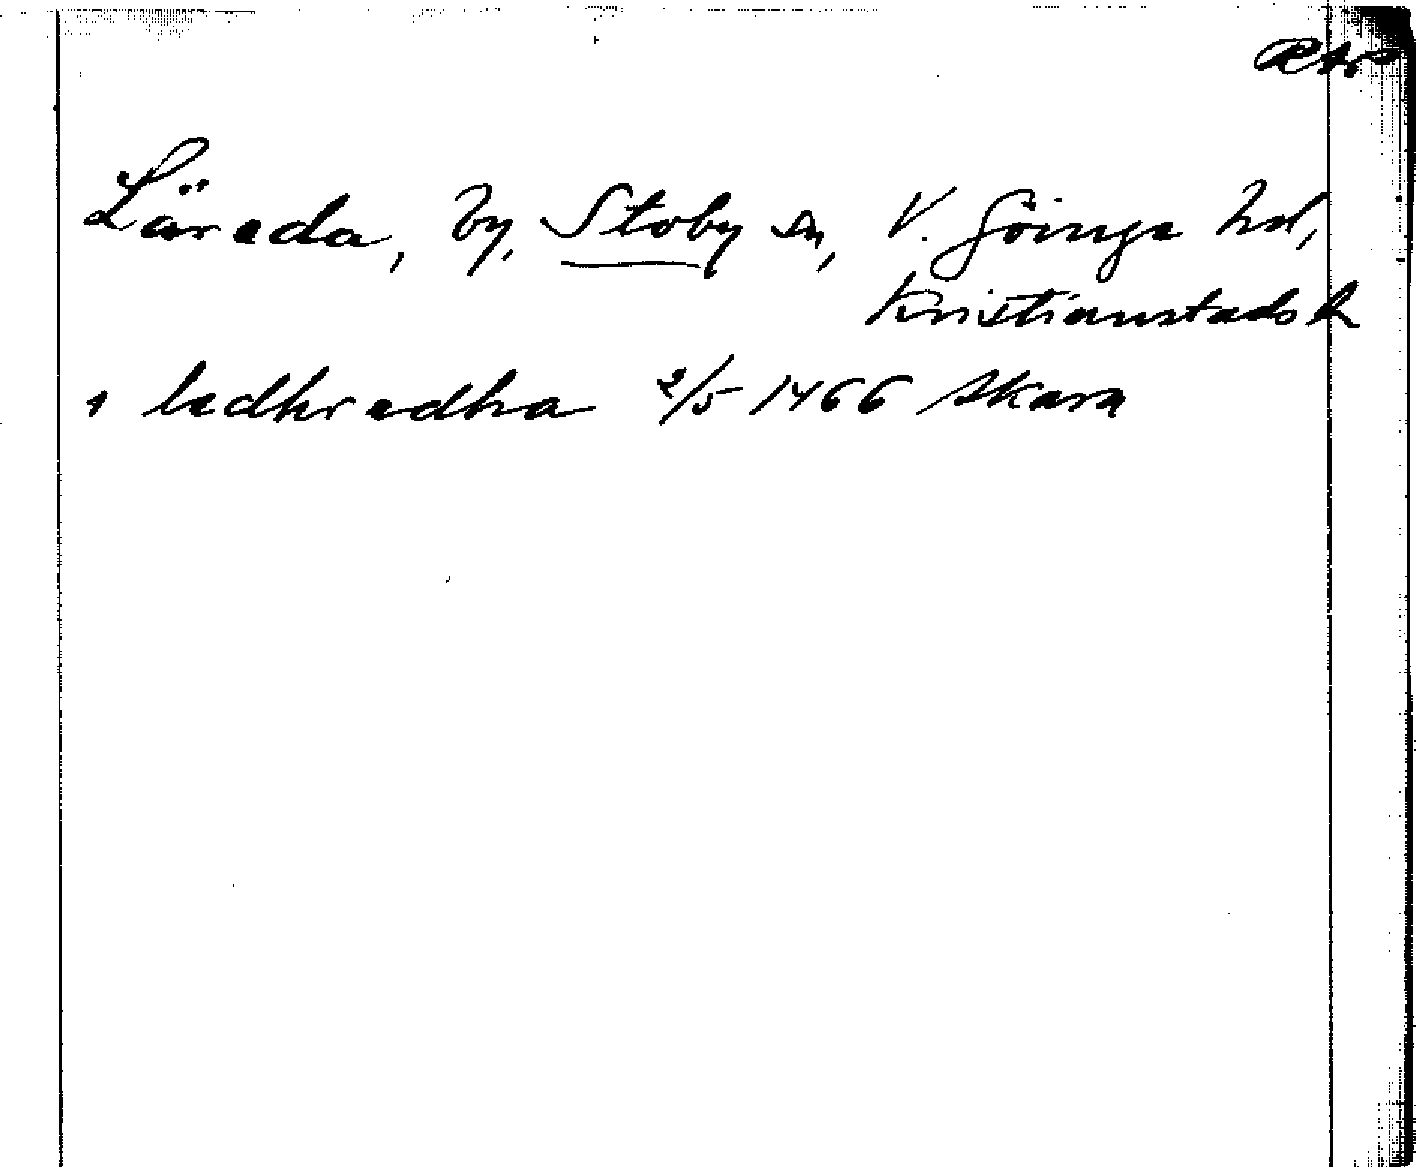 Läreda, by, Stoby sn, V. Göinge hd,
Kristianstads l
1 ledhredha 2/5 1466 Skara